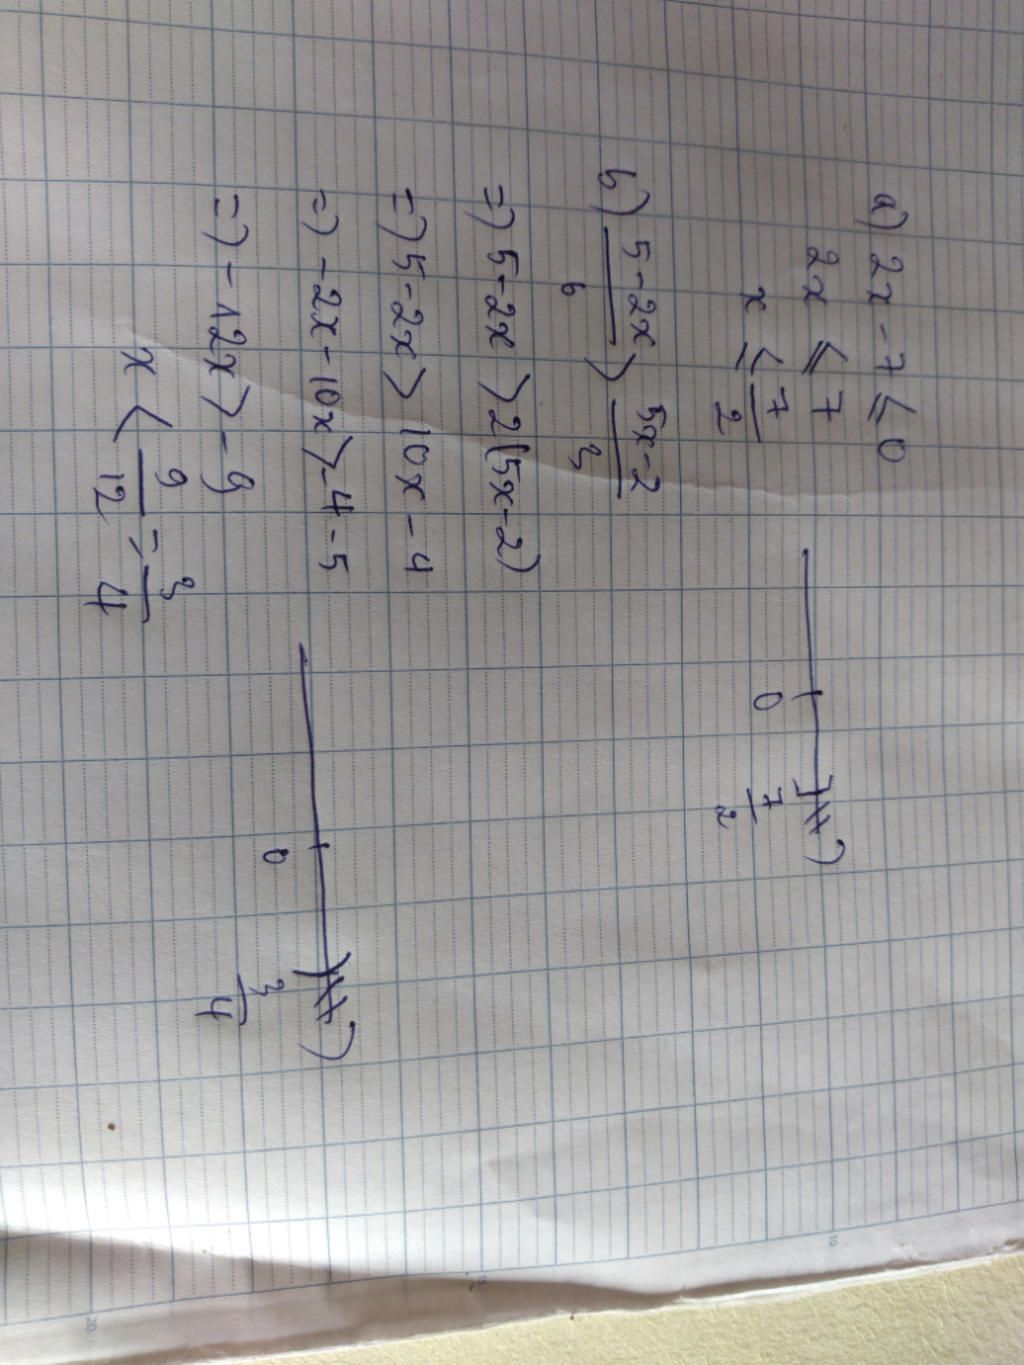 a) 2x - 7 ≤ 0
2x ≤ 7
x ≤ 7/2
0 7/2
b) 5-2x/6 > 5x-2/3
=) 5-2x > 2(5x-2)
=) 5-2x > 10x - 4
=) -2x - 10x > -4 - 5
=) -12x > -9
x < 9/12 = 3/4
0 3/4
10
15
20